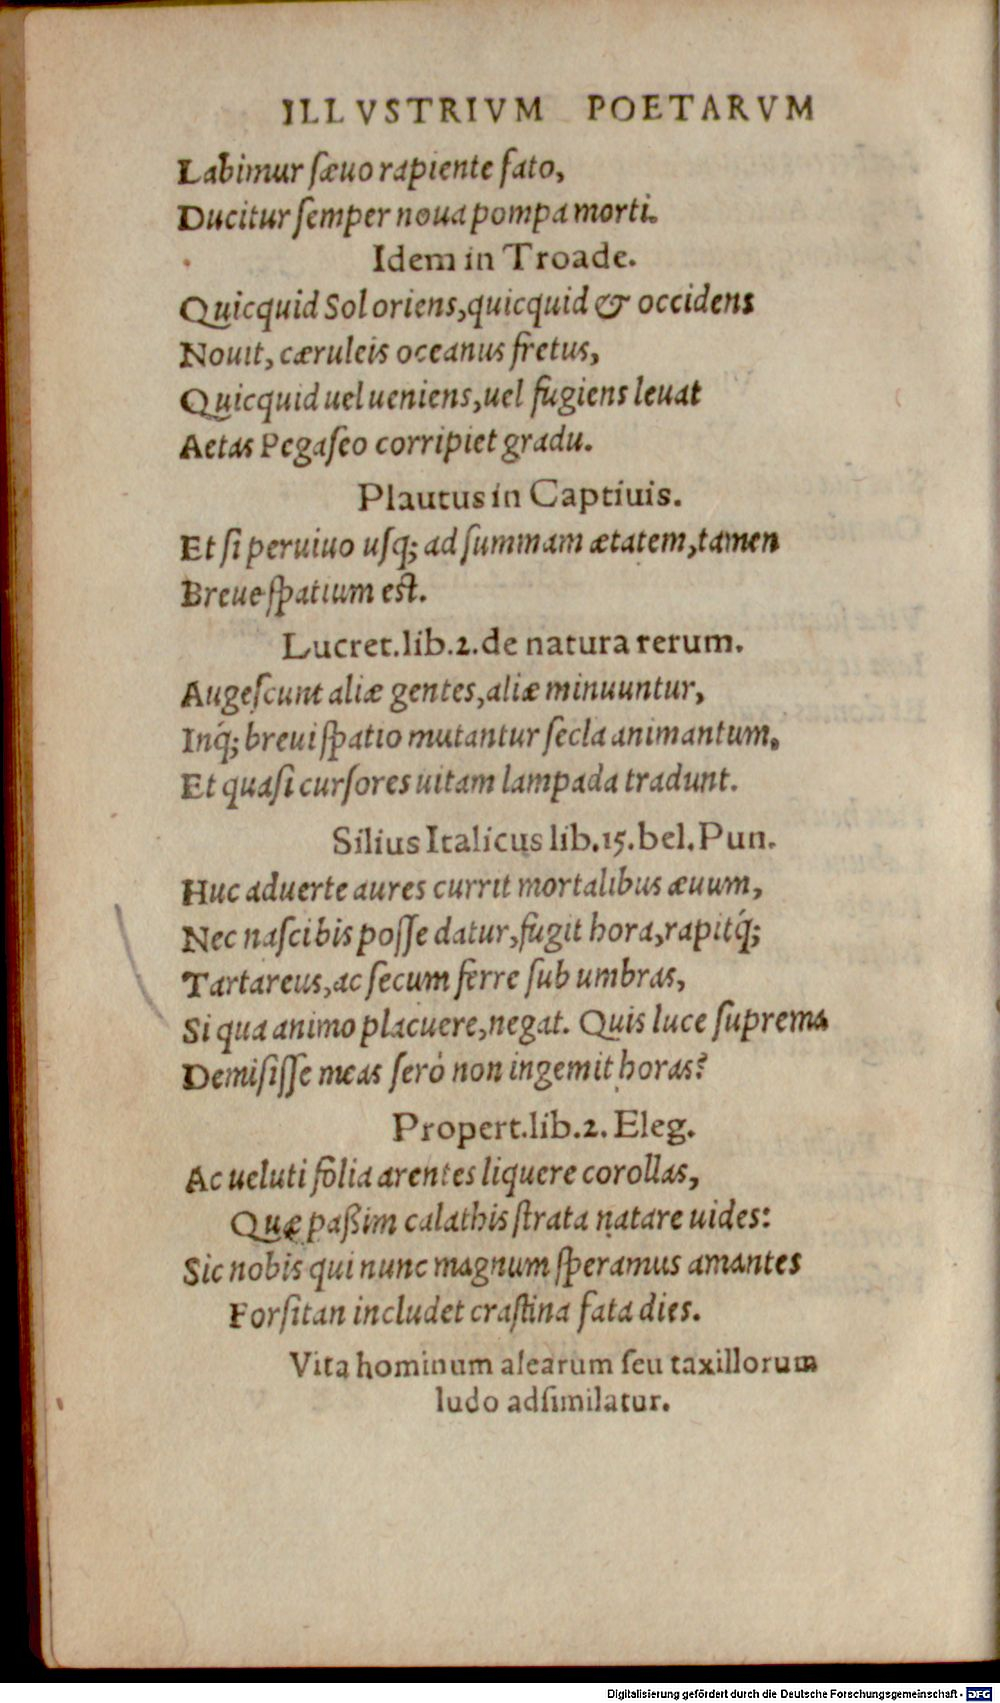 ILLVSTRIVM POETARVM
Labimur sæuo rapiente fato,
Ducitur semper noua pompa morti.
Idem in Troade.
Quicquid Sol oriens, quicquid & occidens
Nouit, cæruleis oceanus fretus,
Quicquid uel ueniens, uel fugiens leuat
Aetas Pegaseo corripiet gradu.
Plautus in Captiuis.
Et si peruiuo usq; ad summam ætatem, tamen
Breue spatium est.
Lucret. lib. 2. de natura rerum.
Augescunt aliæ gentes, aliæ minuuntur,
Inq́; breui spatio mutantur secla animantum,
Et quasi cursores uitam lampada tradunt.
Silius Italicus lib. 15. bel. Pun.
Huc aduerte aures currit mortalibus æuum,
Nec nasci bis posse datur, fugit hora, rapitq́;
Tartareus, ac secum ferre sub umbras,
Si qua animo placuere, negat. Quis luce suprema
Demisisse meas serò non ingemit horas?
Propert. lib. 2. Eleg.
Ac ueluti folia arentes liquere corollas,
Quæ paßim calathis strata natare uides:
Sic nobis qui nunc magnum speramus amantes
Forsitan includet crastina fata dies.
Vita hominum alearum seu taxillorum
ludo adsimilatur.
Digitalisierung gefördert durch die Deutsche Forschungsgemeinschaft - DFG